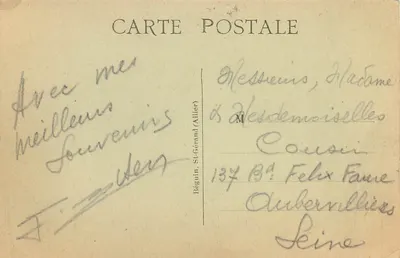 CARTE POSTALE
Avec mes
meilleurs
souvenirs
Messieurs, Madame
& Mesdemoiselles
Cousin
137 Bd. Felix Faure
Aubervilliers
Seine
Béguin, St-Gérand (Allier)